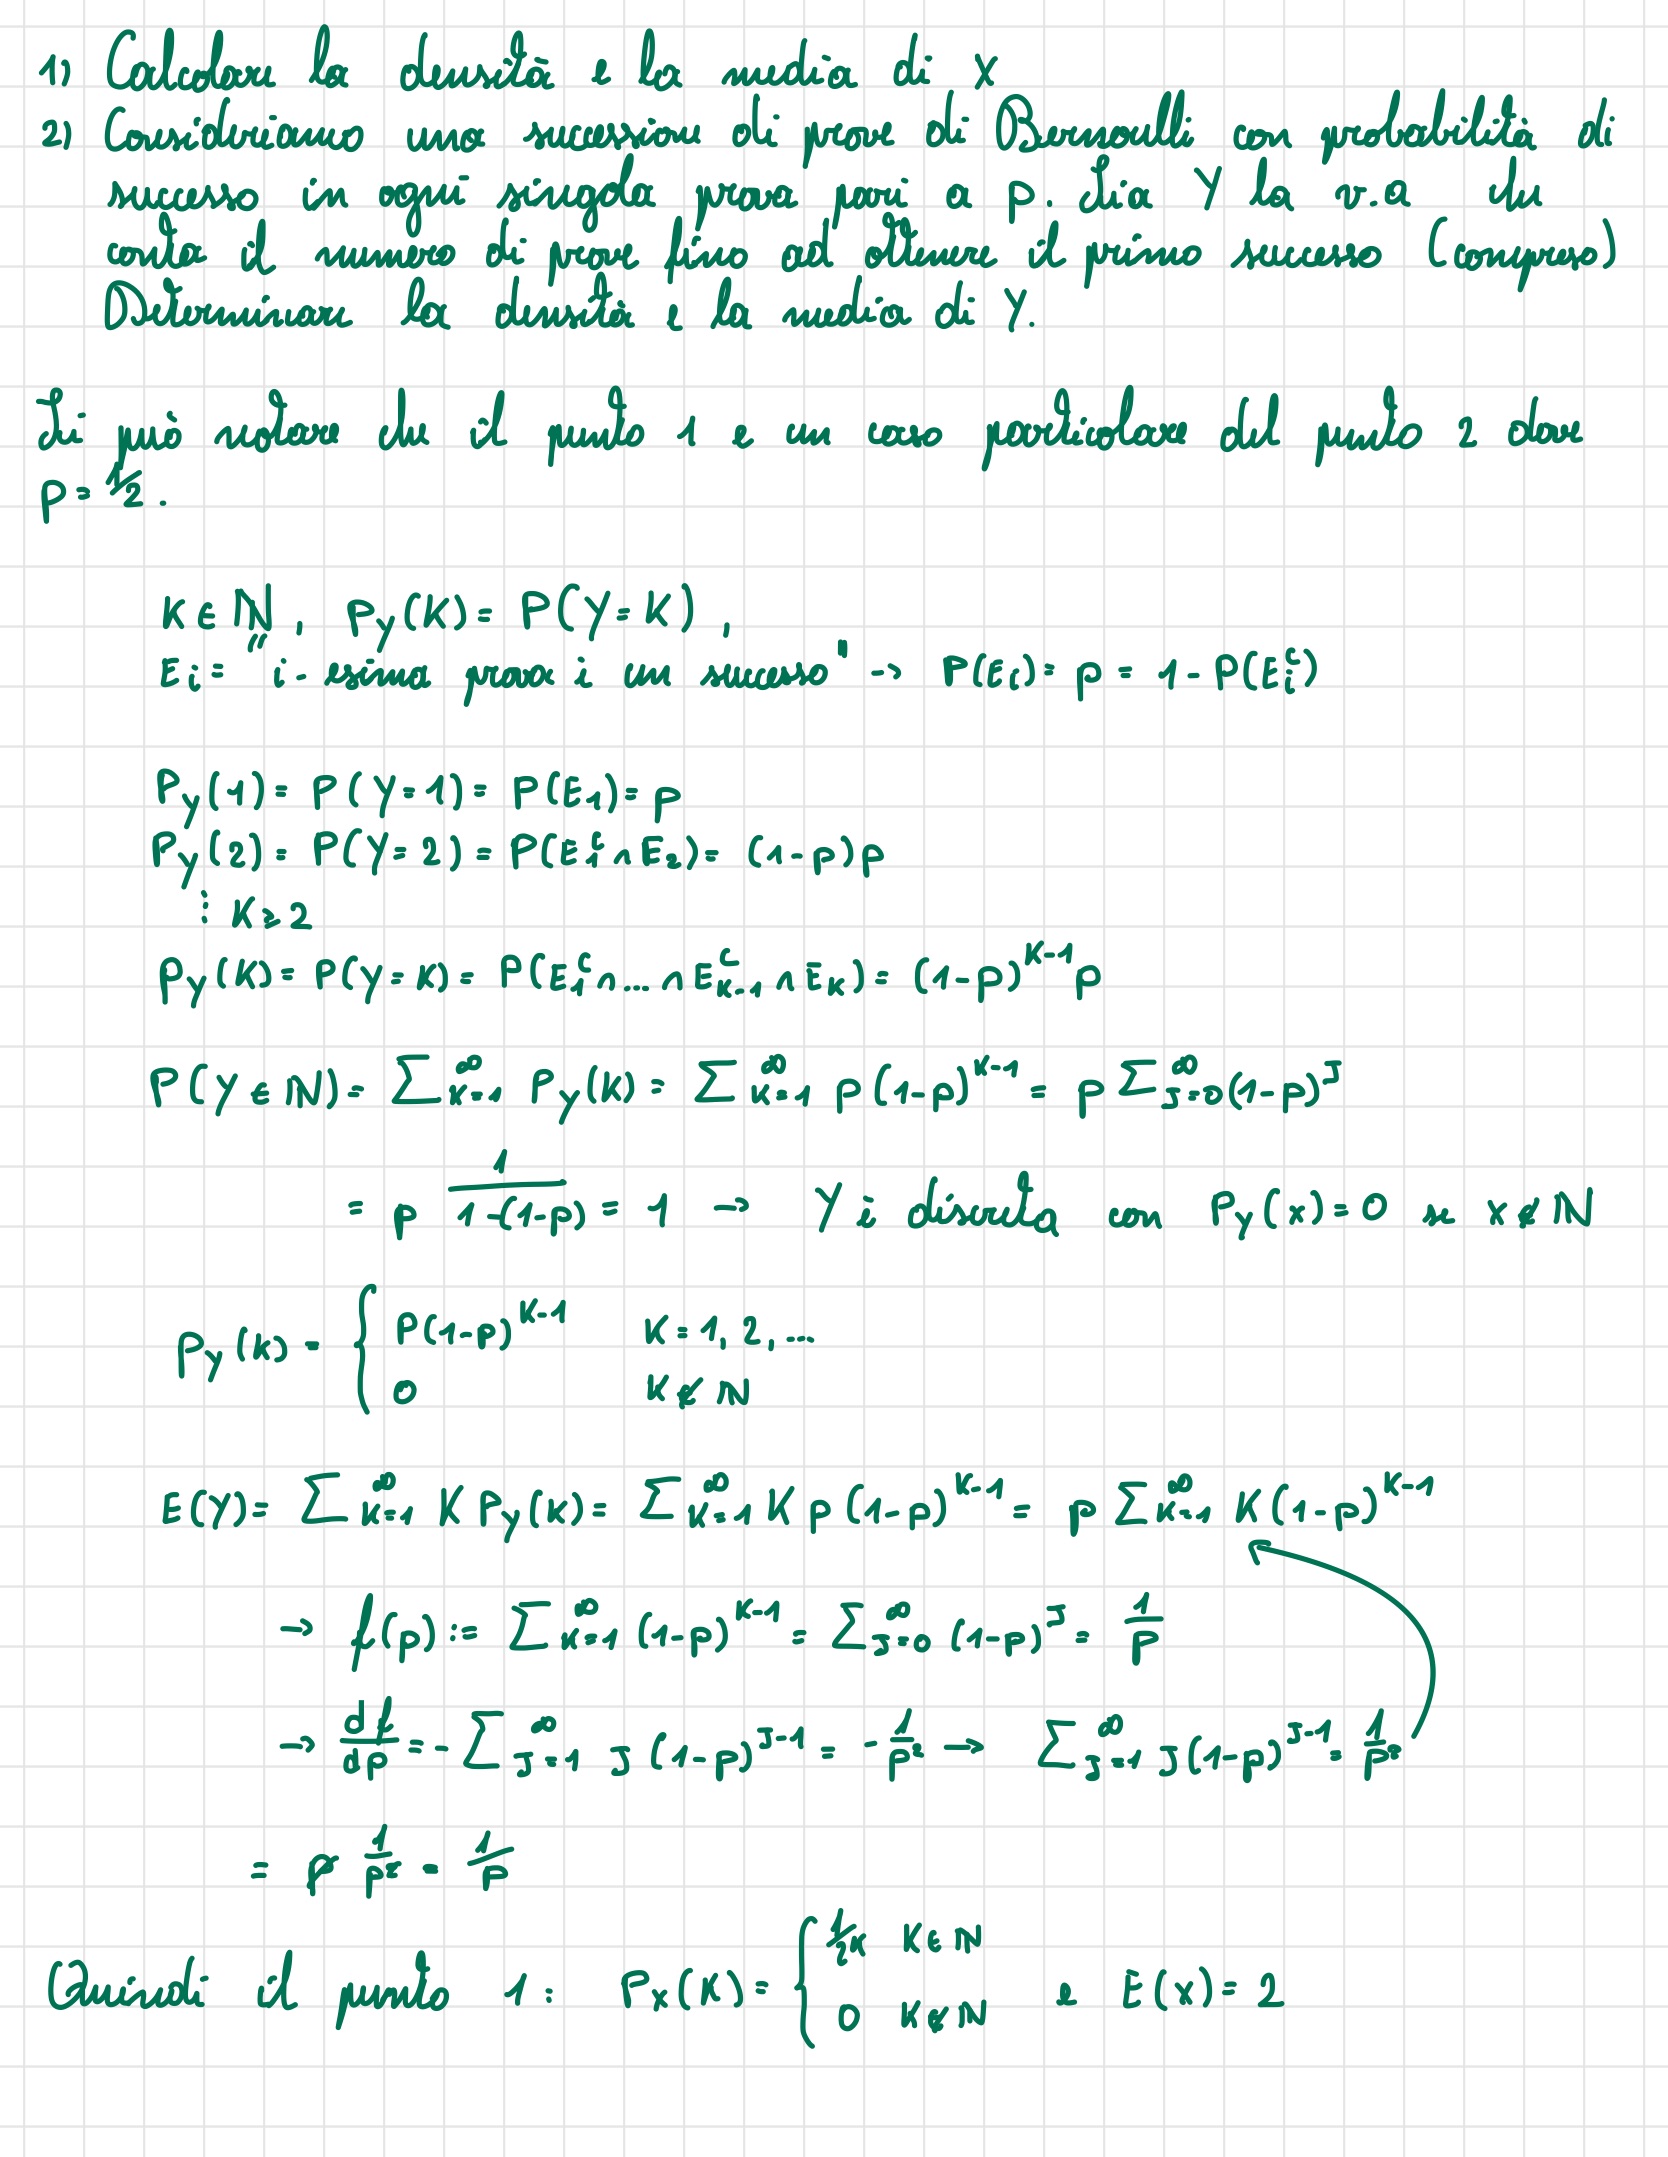 1) Calcolare la densità e la media di X
2) Consideriamo una successione di prove di Bernoulli con probabilità di
successo in ogni singola prova pari a p. Sia Y la v.a che
conta il numero di prove fino ad ottenere il primo successo (compreso)
Determinare la densità e la media di Y.
Si può notare che il punto 1 e un caso particolare del punto 2 dove
p = 1/2.
K ∈ ℕ, P_Y(K) = P(Y=K),
E_i = "i-esima prova è un successo" → P(E_i) = p = 1 - P(E_i^c)
P_Y(1) = P(Y=1) = P(E_1) = p
P_Y(2) = P(Y=2) = P(E_1^c ∩ E_2) = (1-p)p
⋮ K ≥ 2
P_Y(K) = P(Y=K) = P(E_1^c ∩ ... ∩ E_{K-1}^c ∩ E_K) = (1-p)^{K-1} p
P(Y ∈ ℕ) = ∑_{K=1}^∞ P_Y(K) = ∑_{K=1}^∞ p(1-p)^{K-1} = p ∑_{J=0}^∞ (1-p)^J
= p 1/(1-(1-p)) = 1 → Y è discreta con P_Y(x) = 0 se x ∉ ℕ
P_Y(K) = { P(1-p)^{K-1} K = 1, 2, ...
0 K ∉ ℕ
E(Y) = ∑_{K=1}^∞ K P_Y(K) = ∑_{K=1}^∞ K p (1-p)^{K-1} = p ∑_{K=1}^∞ K(1-p)^{K-1}
→ f(p) := ∑_{K=1}^∞ (1-p)^{K-1} = ∑_{J=0}^∞ (1-p)^J = 1/p
→ df/dp = - ∑_{J=1}^∞ J (1-p)^{J-1} = - 1/p² → ∑_{J=1}^∞ J(1-p)^{J-1} = 1/p²
= p 1/p² = 1/p
Quindi il punto 1: P_X(K) = { 1/2^K K ∈ ℕ
0 K ∉ ℕ e E(X) = 2